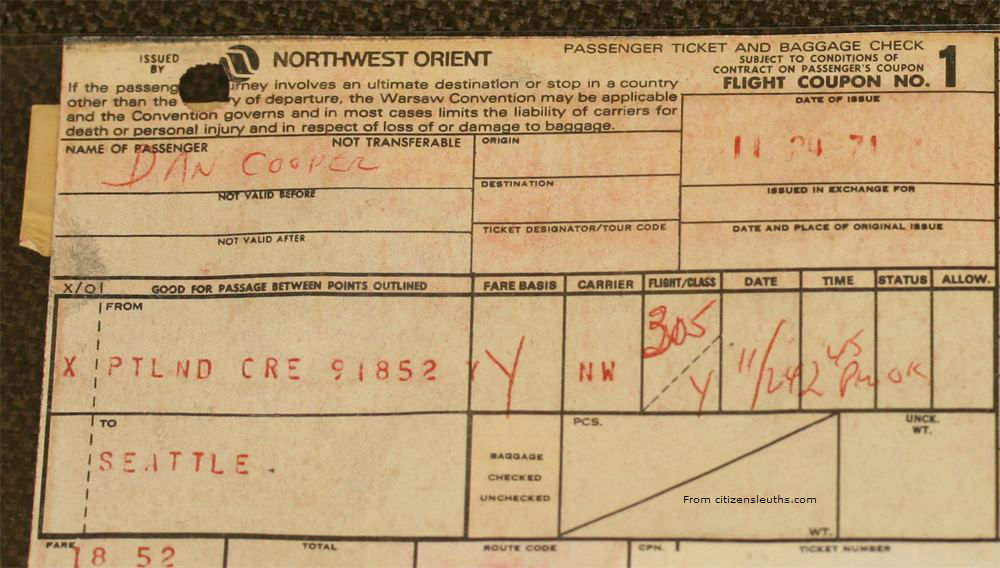 ISSUED BY
NORTHWEST ORIENT
PASSENGER TICKET AND BAGGAGE CHECK
SUBJECT TO CONDITIONS OF
CONTRACT ON PASSENGER'S COUPON
FLIGHT COUPON NO. 1
If the passeng urney involves an ultimate destination or stop in a country
other than the ry of departure, the Warsaw Convention may be applicable
and the Convention governs and in most cases limits the liability of carriers for
death or personal injury and in respect of loss of or damage to baggage.
DATE OF ISSUE
11 24 71
NAME OF PASSENGER NOT TRANSFERABLE
DAN COOPER
ORIGIN
NOT VALID BEFORE
DESTINATION
ISSUED IN EXCHANGE FOR
NOT VALID AFTER
TICKET DESIGNATOR/TOUR CODE
DATE AND PLACE OF ORIGINAL ISSUE
X/O GOOD FOR PASSAGE BETWEEN POINTS OUTLINED FARE BASIS CARRIER FLIGHT/CLASS DATE TIME STATUS ALLOW.
FROM
X PTLND ORE 91852 Y Y NW 305 Y 11/24 2 45 PM OK
TO
SEATTLE.
BAGGAGE
CHECKED
UNCHECKED
PCS.
WT.
UNCK.
WT.
From citizensleuths.com
FARE TOTAL ROUTE CODE CPN. TICKET NUMBER
18 52